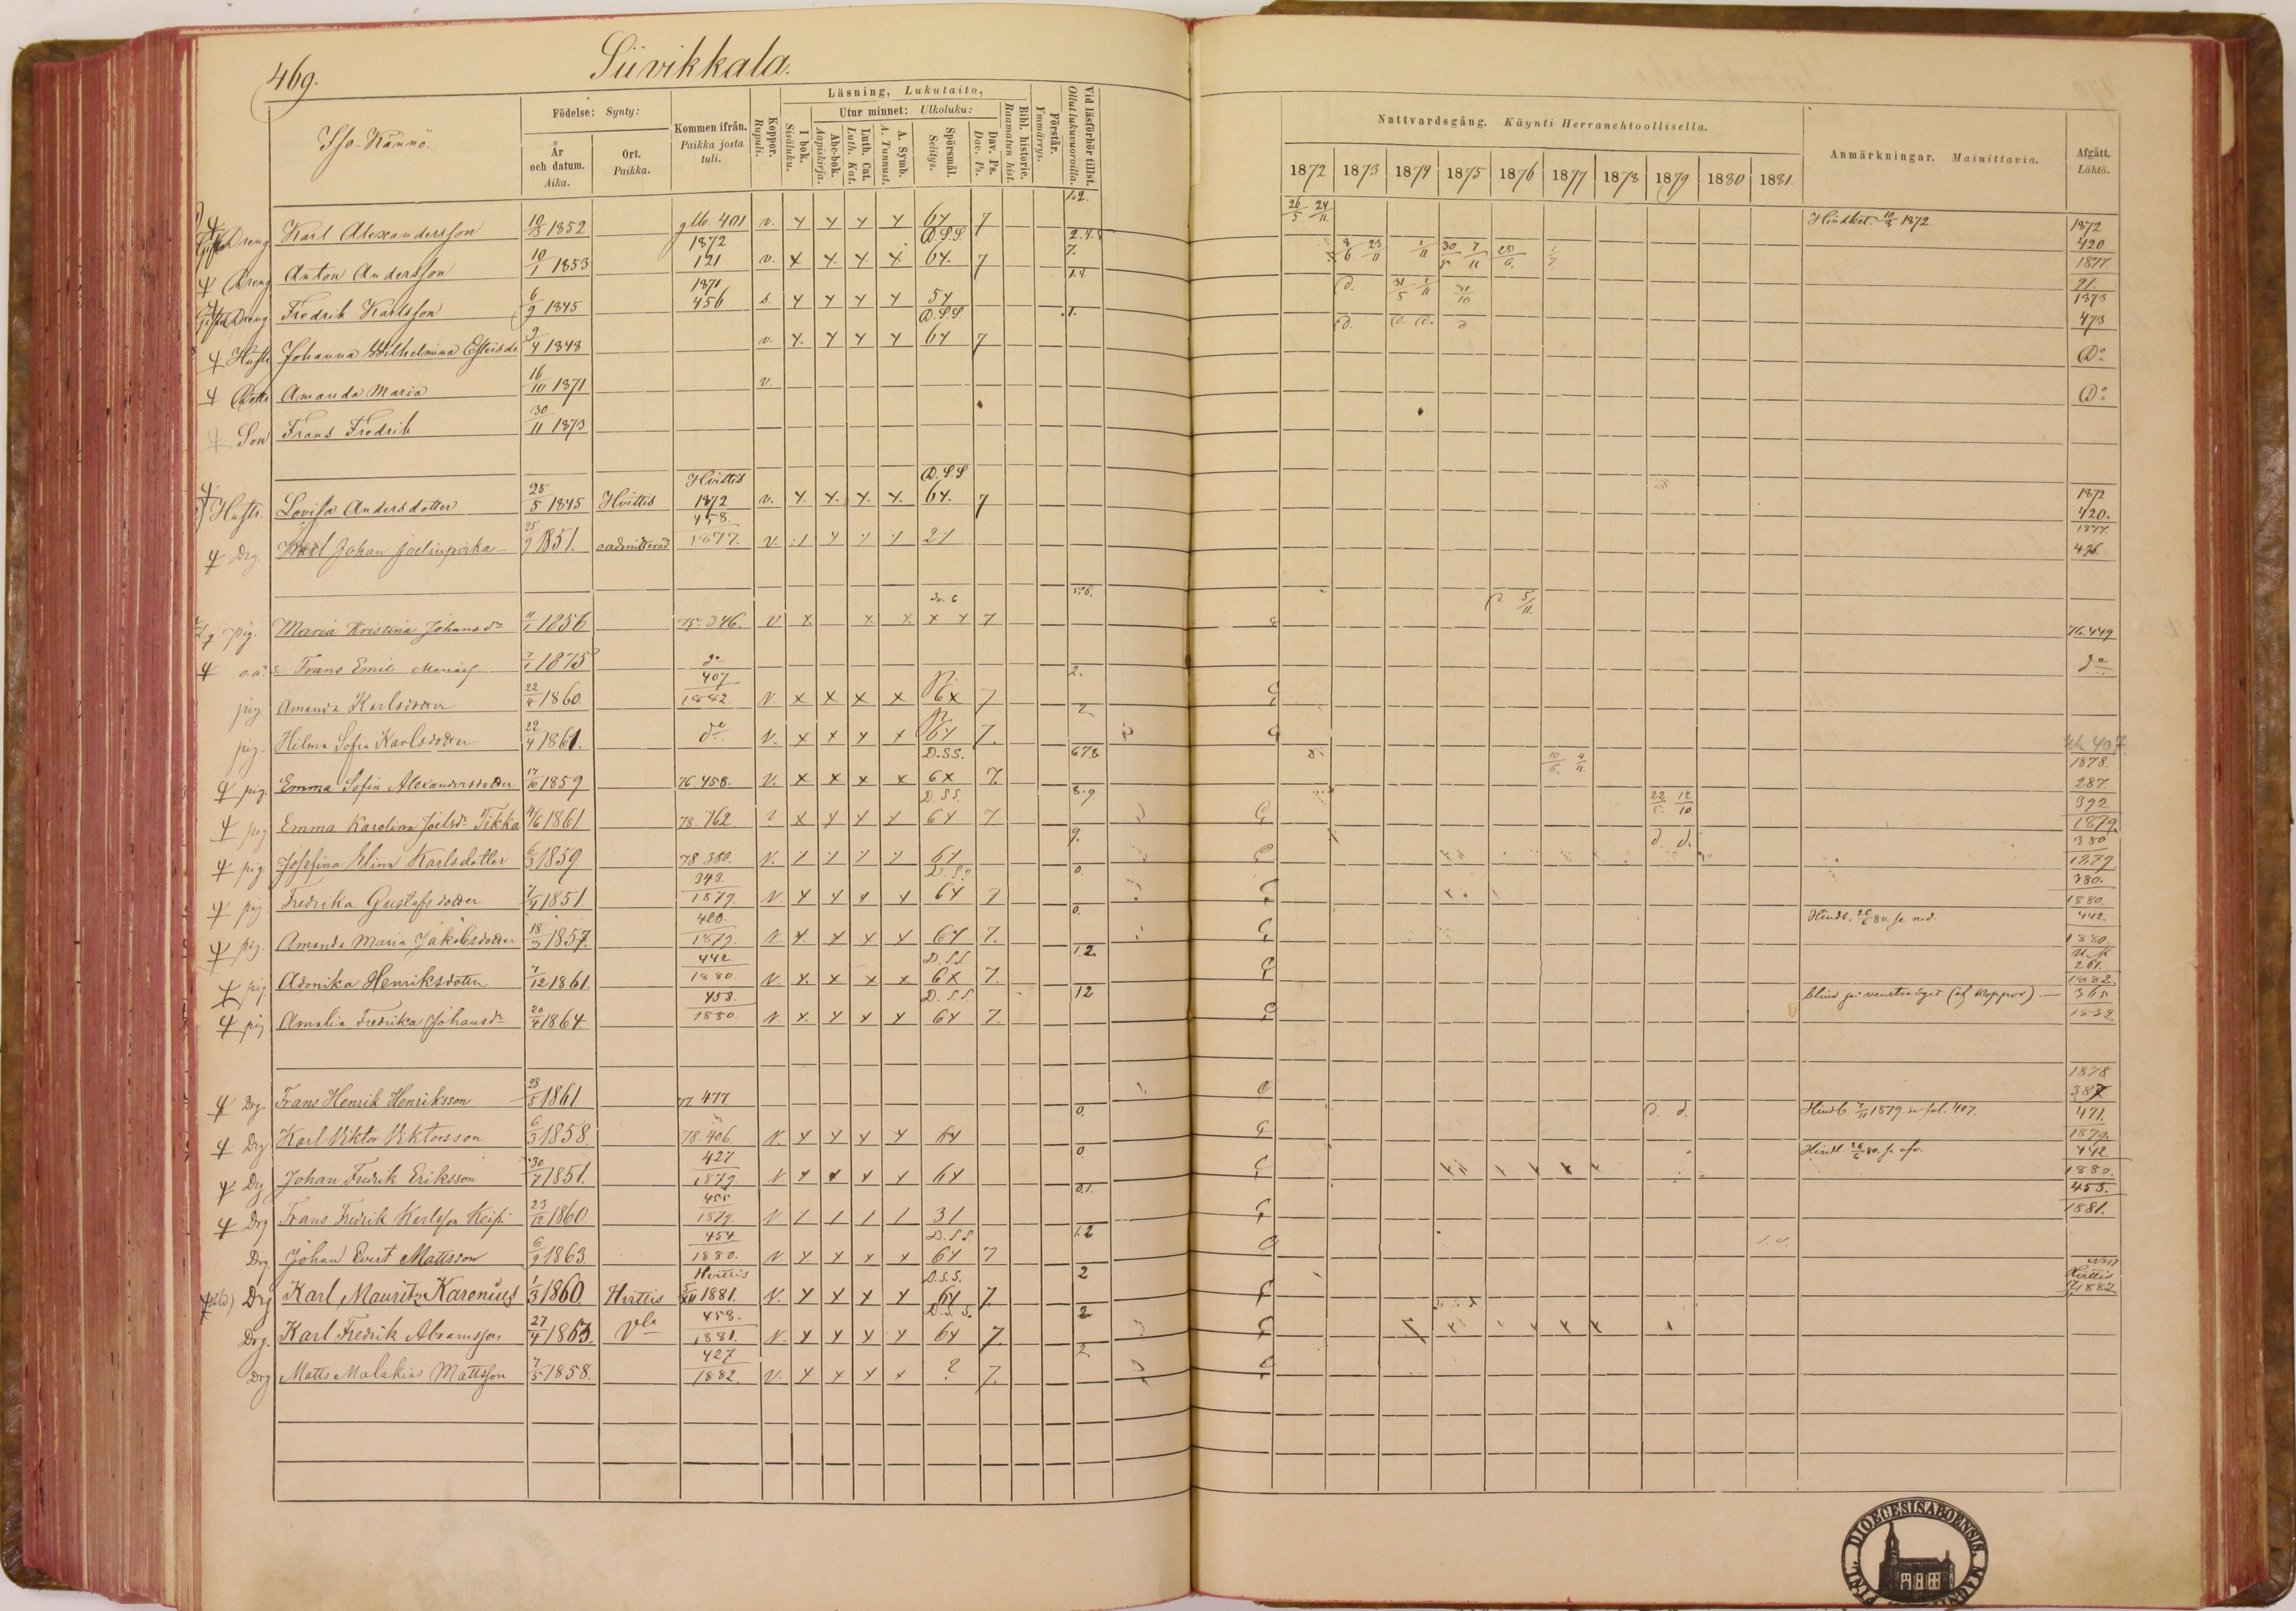 469.
Siivikkala.
Iso-Kännö.
Födelse: Synty:
År och datum. Aika.
Ort. Paikka.
Kommen ifrån. Paikka josta tuli.
Koppor. Rupuli.
Läsning, Lukutaito,
I bok. Sisäluku.
Utur minnet: Ulkoluku:
Abc-bok. Aapiskirja.
Luth. Cat. Luth. Kat.
A. Symb. A. Tunnust.
Spörsmål. Selitys.
Dav. Ps. Dav. Ps.
Bibl. historie. Raamatun hist.
Förstår. Ymmärrys.
Vid läsförhör tillst. Ollut lukuvuoroilla.
Nattvardsgång. Käynti Herranehtoollisella.
1872 1873 1874 1875 1876 1877 1878 1879 1880 1881
Anmärkningar. Mainittavia.
Afgått. Lähtö.
Dreng Karl Alexandersson 10/3 1852 glb 401 v. 6y 7 1.2. 26/5 24/11 Hindlöst 10/8 1872 1872 420
Dreng Anton Andersson 10/1 1853 1872 121 v. D.S.S. 6y. 7 2.4. 7. 1877 21
Gift Dreng Fredrik Karlsson 6/9 1845 1871 456 s. 5y 1.4 1873 473
Hustr Johanna Wilhelmina 9/4 1848 v. D.S.S 6y 7 1. Do
Dottr Amanda Maria 16/10 1871 v. Do
Son Frans Fredrik 30/11 1873
Hustr. Lovisa Andersdotter 25/5 1845 Hvittis Hvittis 1872 v. D.S.S 6y. 7 1872 420.
Drg. Karl Johan 25/9 1851. oadmitterad 458. 1877. v. 21 1877. 476.
pig. Maria Kristina Johansdr 1856 346. v 7 5.6. 5/11. 76.449
Frans Emil 1875 do do
pig. Amanda Karlsdotter 22/4 1860. 407 1882. v. 6x 7 2.
pig. Hilma Sofia Karlsdotter 22/4 1861. do v. 6y 7. 2 407.
pig Emma Sofia Alexandersdotter 17/10 1859 76 458. v. D.S.S. 6x 7. 6.7.8. 10/6. 4/11. 1878. 287.
pig Emma Karolina Joelsdr Tikka 4/6 1861 78. 762. D.S.S. 6y 7 8.9. 22 12/10 392 1879
pig Josefina Elina Karlsdotter 6/3 1859 78 380. v. 6y 9. d. d. 380 1279.
pig Fredrika Gustafsdotter 7/4 1851. 343. 1879. v. D.S.S 6y 7 0. 380. 1880.
pig. Amanda Maria Jakobsdotter 18/3 1857. 420. 1879. v. 6y 7. 0. Hindl. 26/6 80. se ned. 442 1880.
pig. Adonika Henriksdotter 7/12 1861. 442 1880. v. D.S.S. 6x 7. 1.2. 261. 1882.
pig Amalia Fredrika Johansdr 20/4 1864 458. 1880. v. D.S.S. 6y 7. 12 blind på venstra ögat (af Koppor). 365 1882
Drg. Frans Henrik Henriksson 28/5 1861 77 477 1878 387
Drg Karl Viktor Viktorsson 6/3 1858. 78.406. v. 6y 0. d. d. Hindl. 7/11 1879. se fol. 407. 471. 1879.
Drg Johan Fredrik Eriksson 30/7 1851. 427 1879 v. 6y 0 Hindl 26/6 80. se ofv. 442 1880.
Drg Frans Fredrik Karlsson 23/12 1860 455 1879. v 31 0.1. 455. 1881.
Drg. Johan Evert Mattsson 6/9 1863. 454 1880. v. D.S.S. 6y 7 1.2
Drg Karl Mauritz Karonius 1/3 1860. Hvittis Hvittis 1881. v. D.S.S. 6y 7 2 Hvittis 1882
Drg. Karl Fredrik Abramsson 27/4 1863. 458. 1881. v. D.S.S. 6y 7. 2
Drg Matts Malakias Mattsson 7/5 1858. 427 1882. v. ? 7. 2
DIOECESIS ABOENSIS